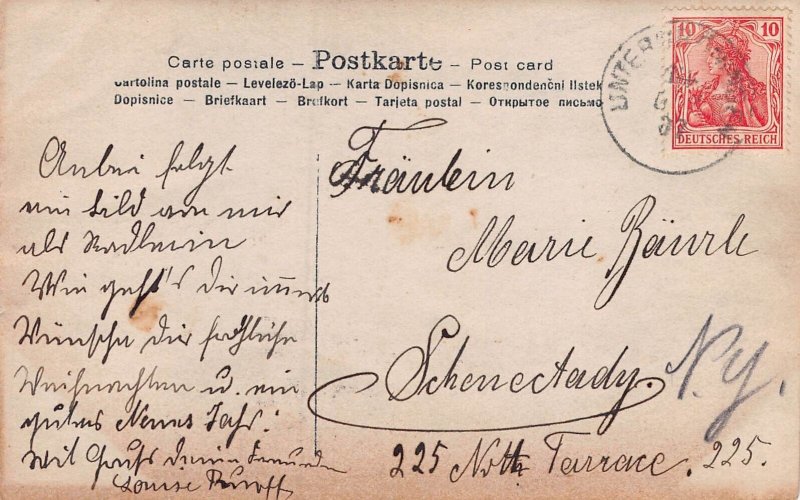 Carte postale – Postkarte – Post card
Cartolina postale – Levelező-Lap – Karta Dopisnica – Korespondenční lístek
Dopisnice – Briefkaart – Brefkort – Tarjeta postal – Открытое письмо
10 10
DEUTSCHES REICH
UNTER
Anbei folgt
ein Bild von mir
als Radlerin
Wie geht's dir immer
Wünsche dir fröhliche
Weihnachten u. ein
gutes Neues Jahr!
Mit Gruß deine Freundin
Louise
Fräulein
Marie Bäurle
Schenectady. N.Y.
225 Nott Terrace. 225.